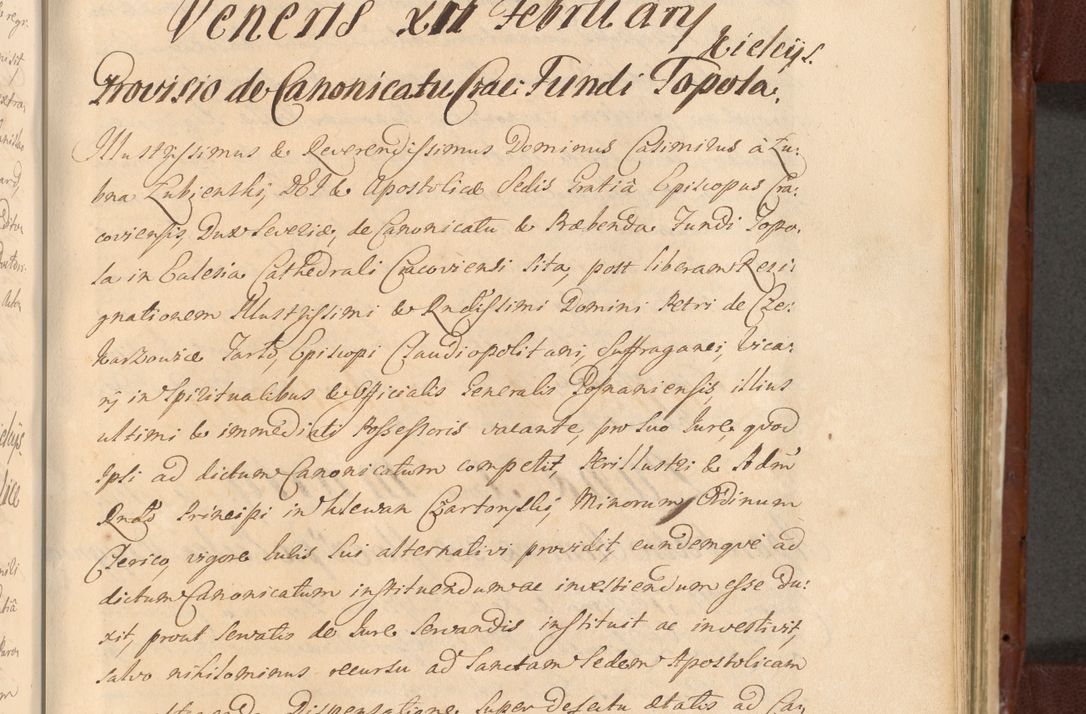 Veneris XIII February
Kielcijs.
Provisio de Canonicatu Crac: Fundi Topola.
Illustrissimus & Reverendissimus Dominus Casimirus à Łu:
bna Łubienskij, DEI & Apostolicæ Sedis Gratiâ Episcopus Cra:
coviensis, Dux Severiæ, de Canonicatu & Præbenda Fundi Topo:
la in Eclesia Cathedrali Cracoviensi sita, post liberam Resi:
gnationem Illustrissimi & Rndissimi Domini Petri de
Tarło, Episcopi Claudiopolitani, Suffraganei, Vica:
rij in Spiritualibus & Officialis Generalis Posnaniensis, illius
ultimi & immediati Possessoris vacante, pro suo Jure, quod
ipsi ad dictum Canonicatum competit, Perillustri & Adm
Rndo Principi in Klewan Czartoryski, Minorum Ordinum
Clerico, vigore Juris sui alternativi providit, eundemque ad
dictum Canonicatum instituendum ac investiendum esse du:
xit, prout servatis de Jure servandis instituit ac investivit,
salvo nihilominus recursu ad Sanctam Sedem Apostolicam
Dispensatione super defectu ætatis ad Ca